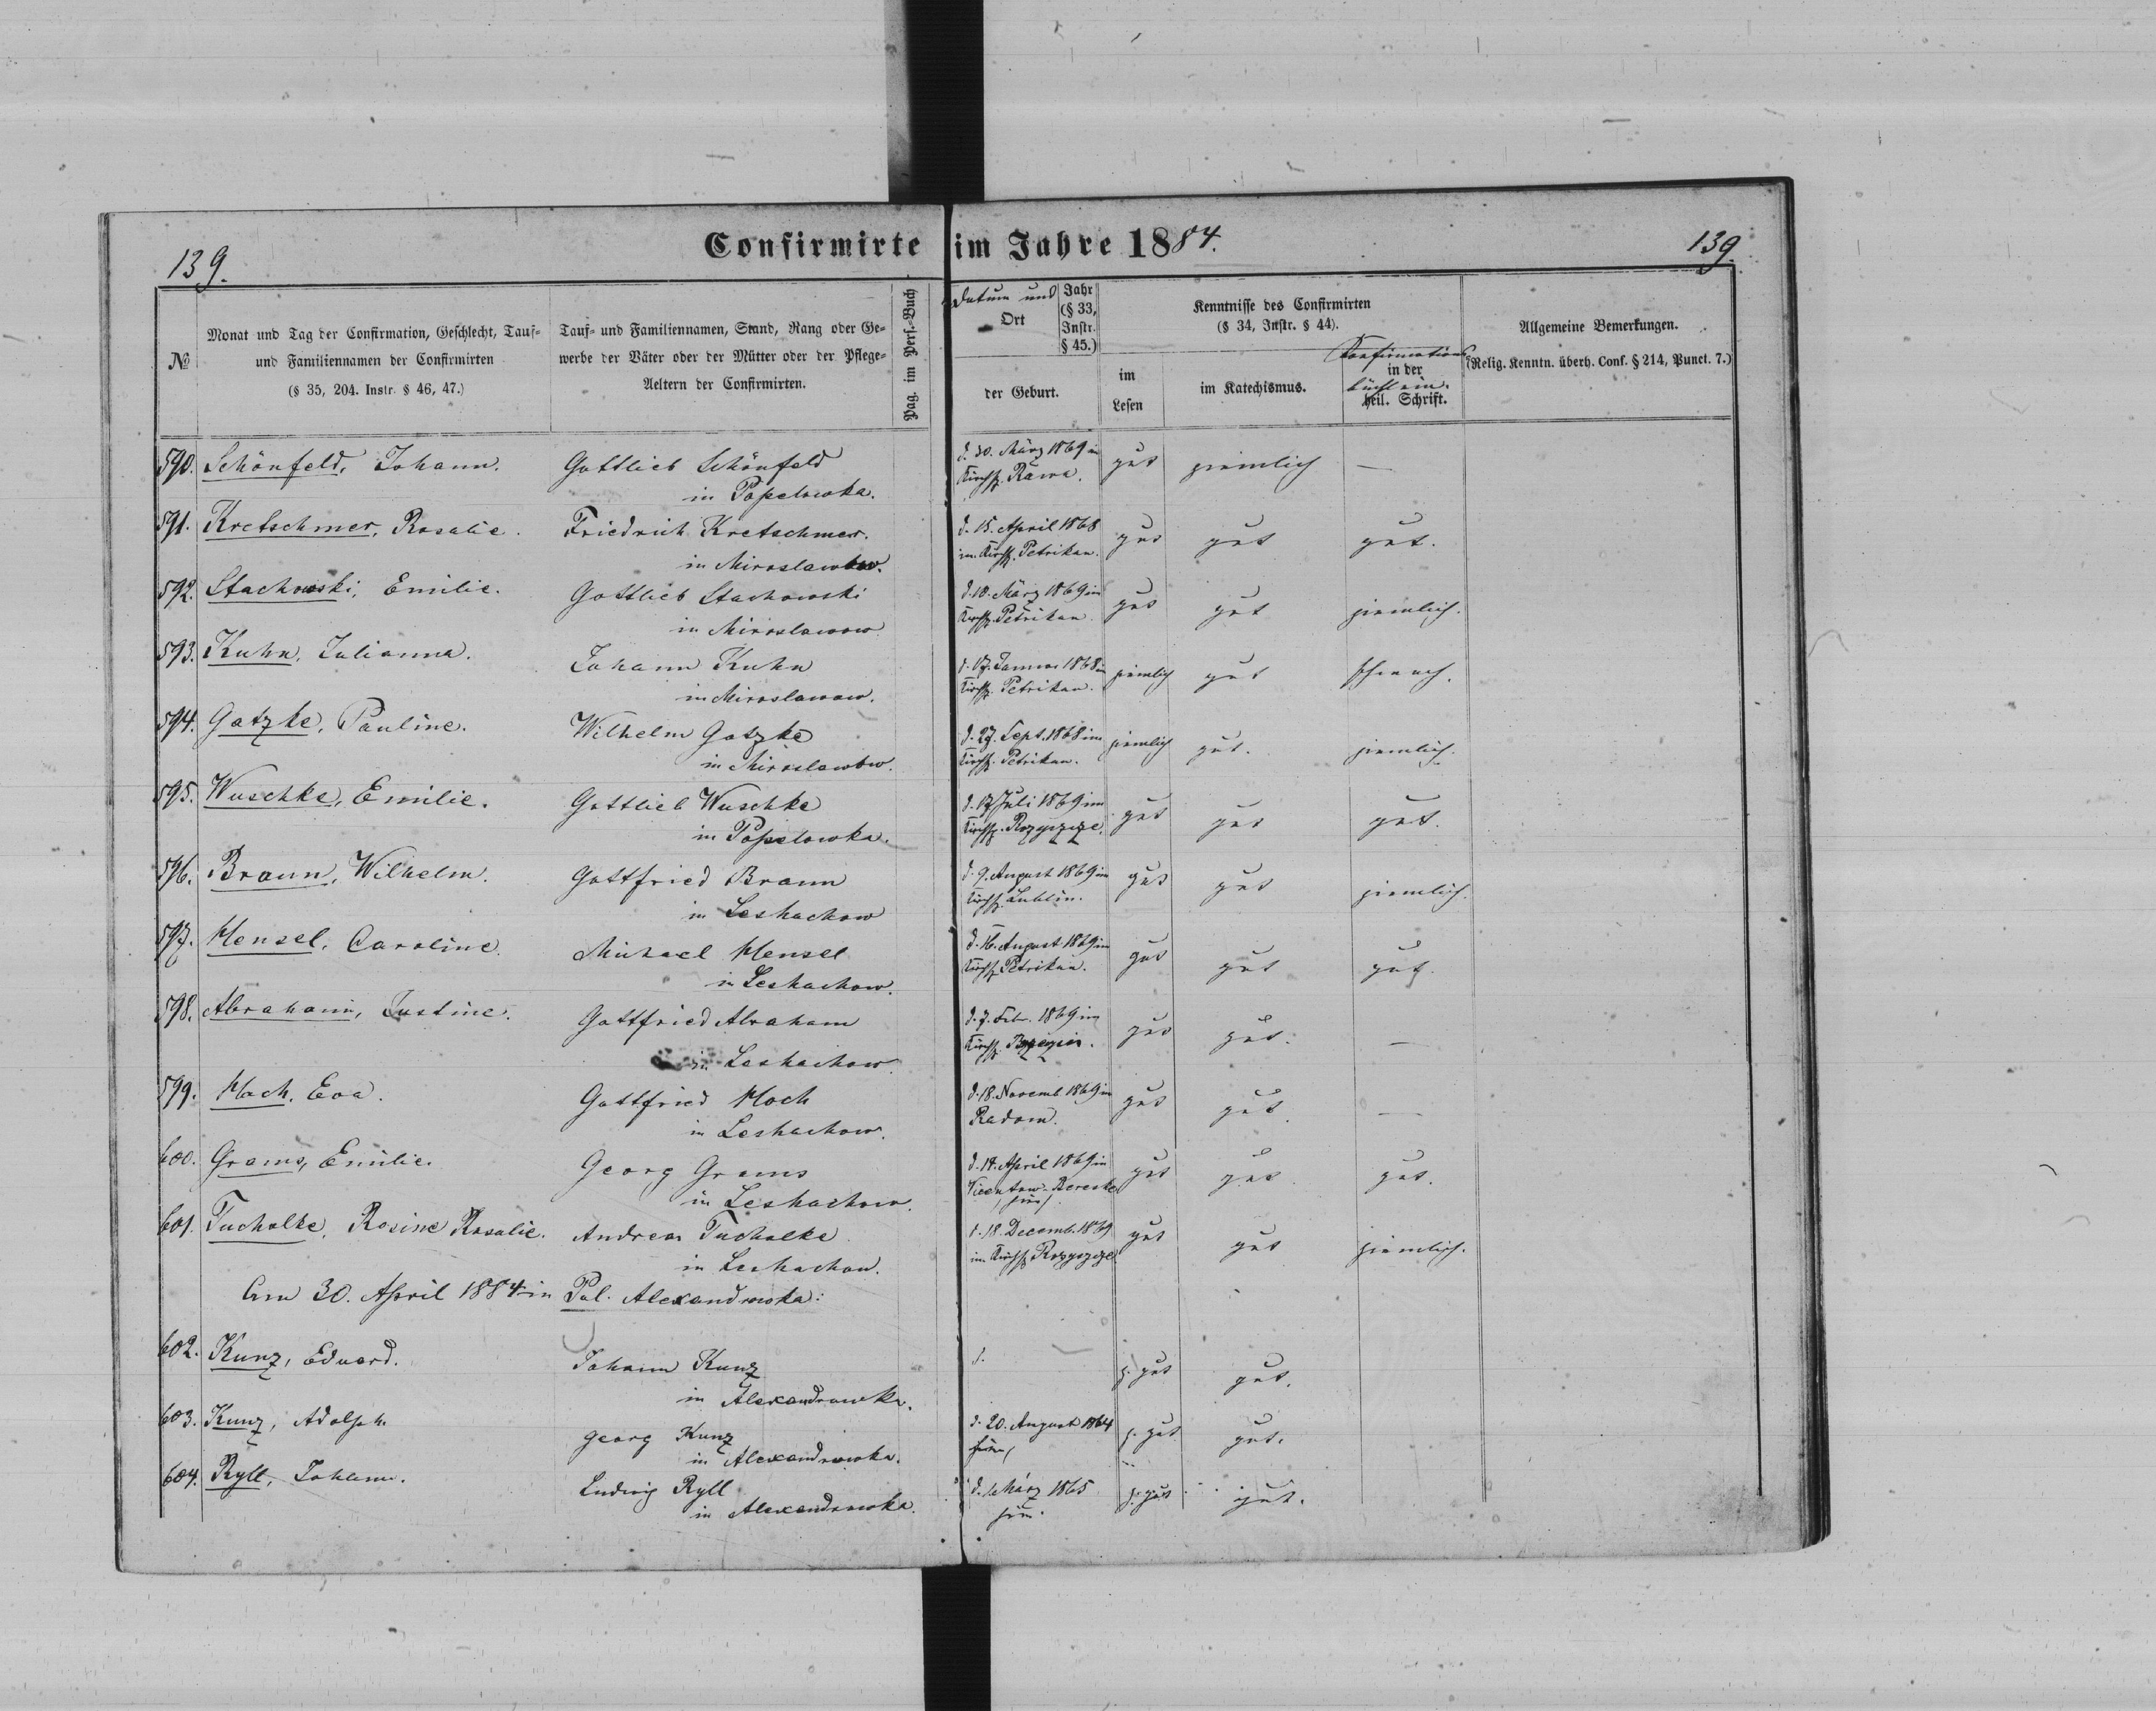 139.
Confirmirte im Jahre 1884.
139.
№
Monat und Tag der Confirmation, Geschlecht, Tauf-
und Familiennamen der Confirmirten
(§ 35, 204. Instr. § 46, 47.)
Tauf- und Familiennamen, Stand, Rang oder Ge-
werbe der Väter oder der Mütter oder der Pflege-
Aeltern der Confirmirten.
Pag. im Pers.-Buch
Datum und
Ort
Jahr
(§ 33,
Instr.
§ 45.)
der Geburt.
Kenntnisse des Confirmirten
(§ 34, Instr. § 44).
im
Lesen
im Katechismus.
Confirmations
in der
büchlein.
heil. Schrift.
Allgemeine Bemerkungen.
(Relig. Kenntn. überh. Conf. § 214, Punct. 7.)
590. Schönfeld, Johann. Gottlieb Schönfeld d. 30. März 1869 in gut ziemlich —
in Popelowka. Kirchsp. Rawa.
591. Kretschmer, Rosalie. Friedrich Kretschmer. d. 15. April 1868 gut gut gut.
in Miroslawow. im Kirchsp. Petrikau.
592. Stachowski, Emilie. Gottlieb Stachowski d. 18. März 1869 im gut gut ziemlich.
in Miroslawow Kirchsp. Petrikau
593. Kuhn, Julianna. Johann Kuhn d. 17. Januar 1868 im ziemlich gut schwach.
in Miroslawow. Kirchsp. Petrikau.
594. Gatzke, Pauline. Wilhelm Gatzke d. 27. Sept. 1868 im ziemlich gut. ziemlich.
in Miroslawow. Kirchsp. Petrikau.
595. Wuschke, Emilie. Gottlieb Wuschke d. 17 Juli 1869 im gut gut gut.
in Popelowka. Kirchsp. Rozyszcze.
596. Braun, Wilhelm. Gottfried Braun d. 9. August 1869 im gut gut ziemlich.
in Leshachow Kirchsp. Lublin.
597. Hensel, Caroline. Michael Hensel d. 16. August 1869 im gut gut gut.
in Leshachow. Kirchsp. Petrikau.
598. Abraham, Justine. Gottfried Abraham d. 7. Febr. 1869 im gut gut. —
in Leshachow. Kirchsp.
599. Hoch, Eva. Gottfried Hoch d. 18. Novemb 1869 in gut gut. —
in Leshachow. Radom.
600. Grams, Emilie. Georg Grams d. 14. April 1869 in gut gut gut.
in Leshachow.
601. Tucholke, Rosine Rosalie. Andreas Tucholke d. 18. Decemb. 1869 gut gut ziemlich.
in Leshachow. im Kirchsp. Rozyszcze.
Am 30. April 1884 in Pol. Alexandrowka:
602. Kunz, Eduard. Johann Kunz d. — z. gut gut.
in Alexandrowka.
603. Kunz, Adolph. Georg Kunz d. 20. August 1864 z. gut gut.
in Alexandrowka. hier
604. Ryll, Johann. Ludwig Ryll d. März 1865 z. gut gut.
in Alexandrowka. hier.